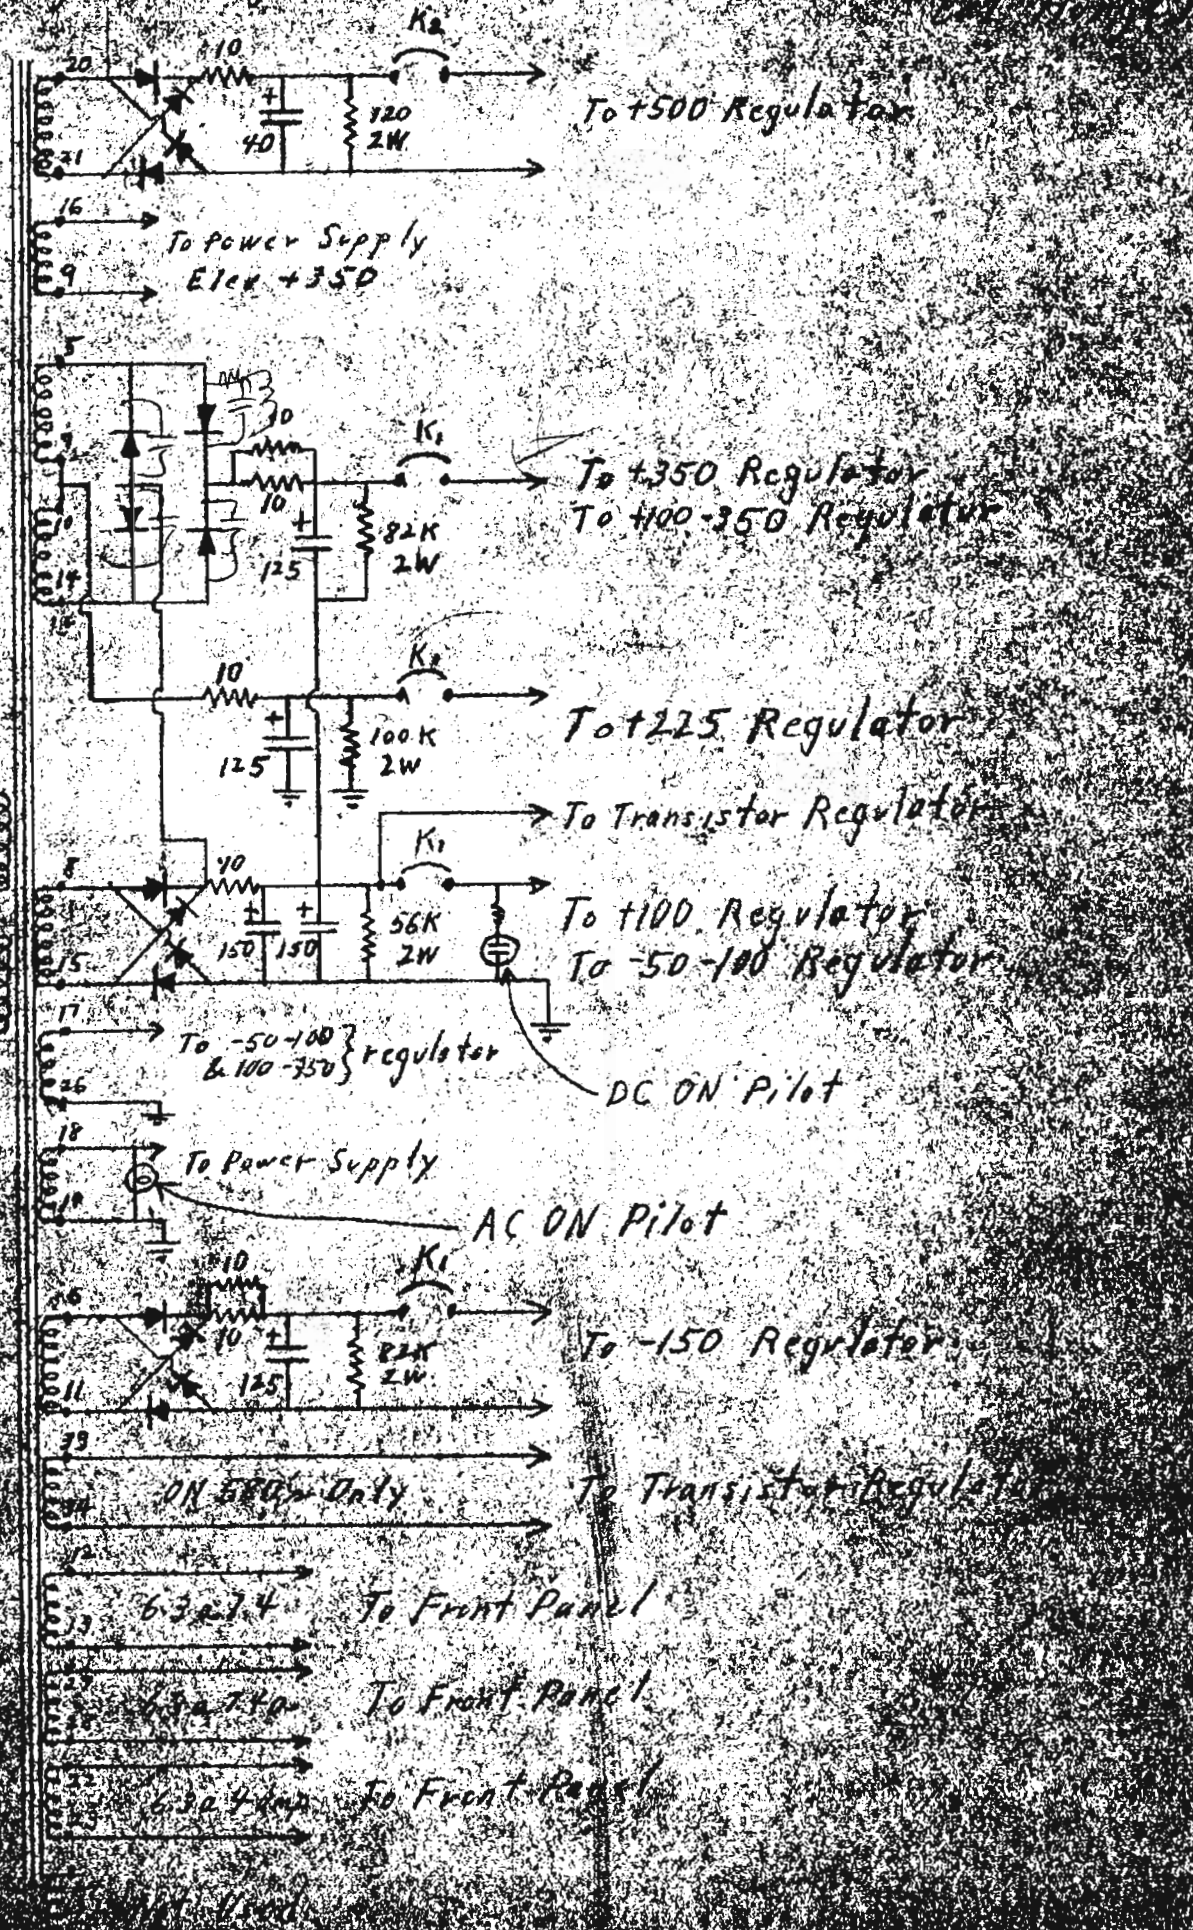 K2
20
10
+
40
120
2W
To +500 Regulator
21
16
To Power Supply
9
Elev +350
5
10
K1
10
To +350 Regulator
To +100-350 Regulator
10
+
125
82K
2W
14
10
+
125
100K
2W
To +225 Regulator
To Transistor Regulator
8
10
K1
+
150
+
150
56K
2W
To +100 Regulator
To -50-100 Regulator
15
17
To -50-100
& 100-350 } regulator
26
DC ON Pilot
18
To Power Supply
19
AC ON Pilot
10
K1
6
10
+
125
82K
2W
To -150 Regulator
11
ON Only
To Transistor Regulator
12
6.3 a 7.4
To Front Panel
13
To Front Panel
22
6.3 a 4 amp
To Front Panel
Used